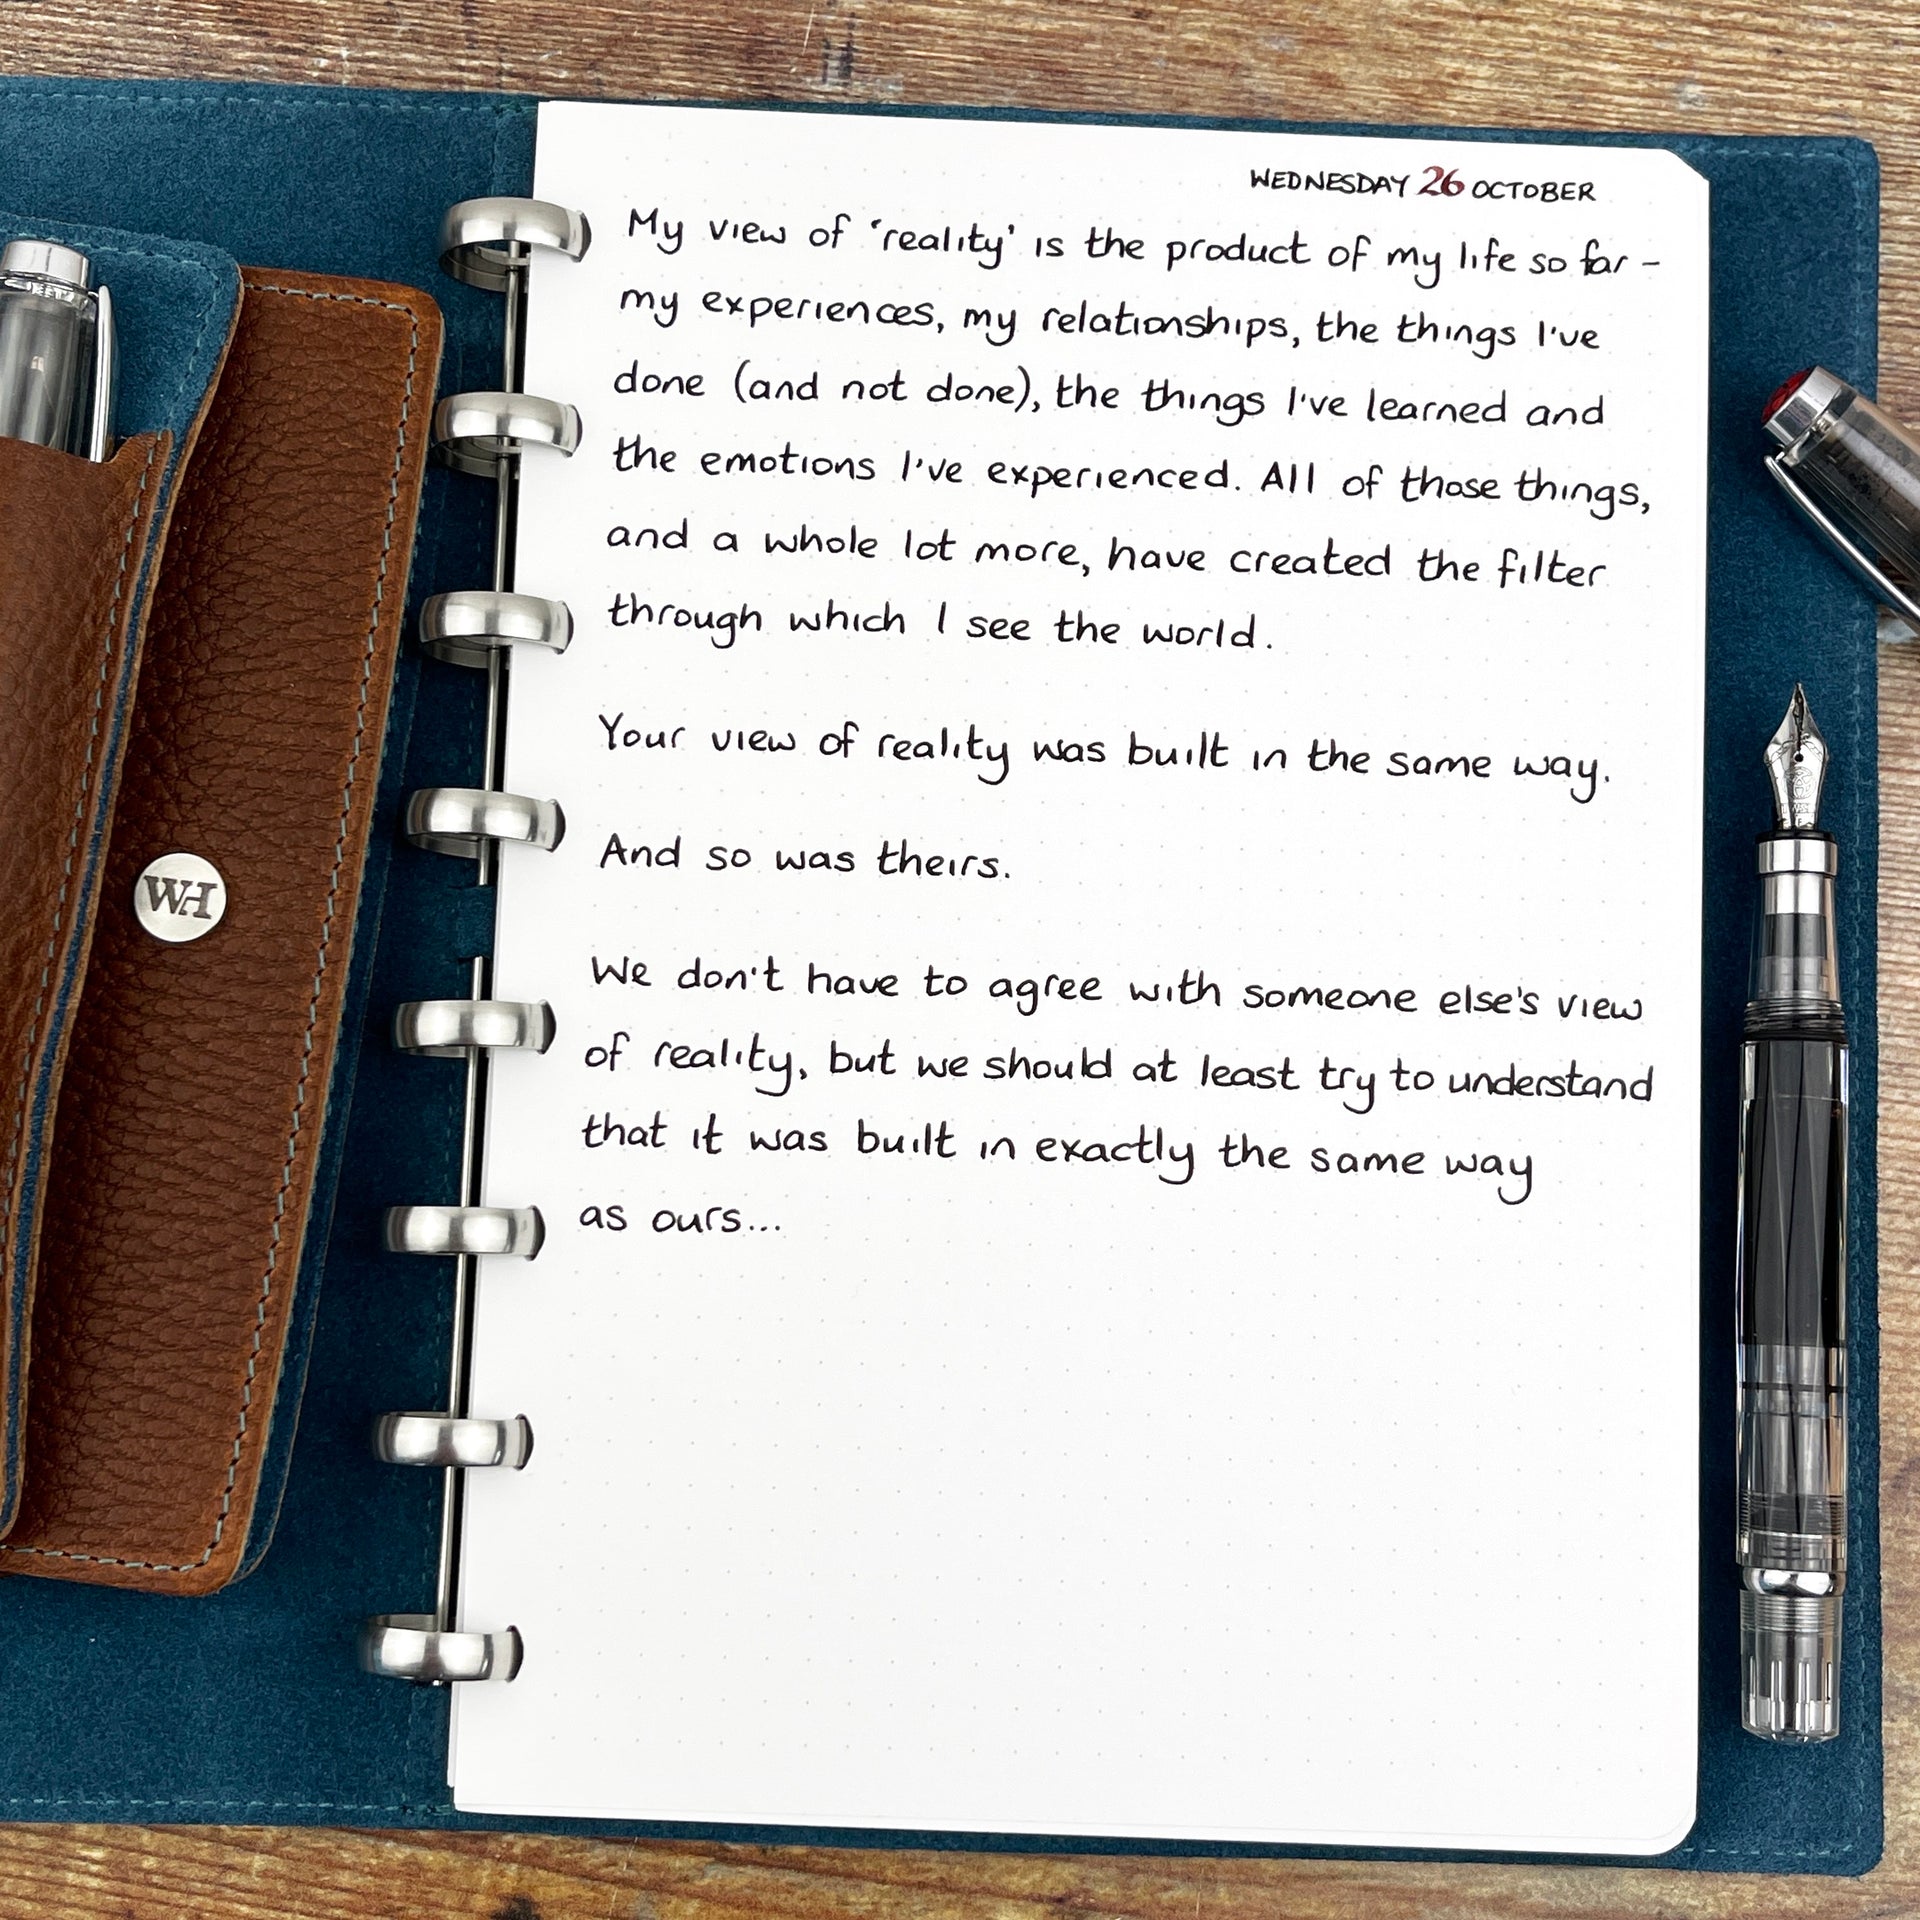 WEDNESDAY 26 OCTOBER
My view of 'reality' is the product of my life so far -
my experiences, my relationships, the things I've
done (and not done), the things I've learned and
the emotions I've experienced. All of those things,
and a whole lot more, have created the filter
through which I see the world.
Your view of reality was built in the same way.
And so was theirs.
We don't have to agree with someone else's view
of reality, but we should at least try to understand
that it was built in exactly the same way
as ours...
WH